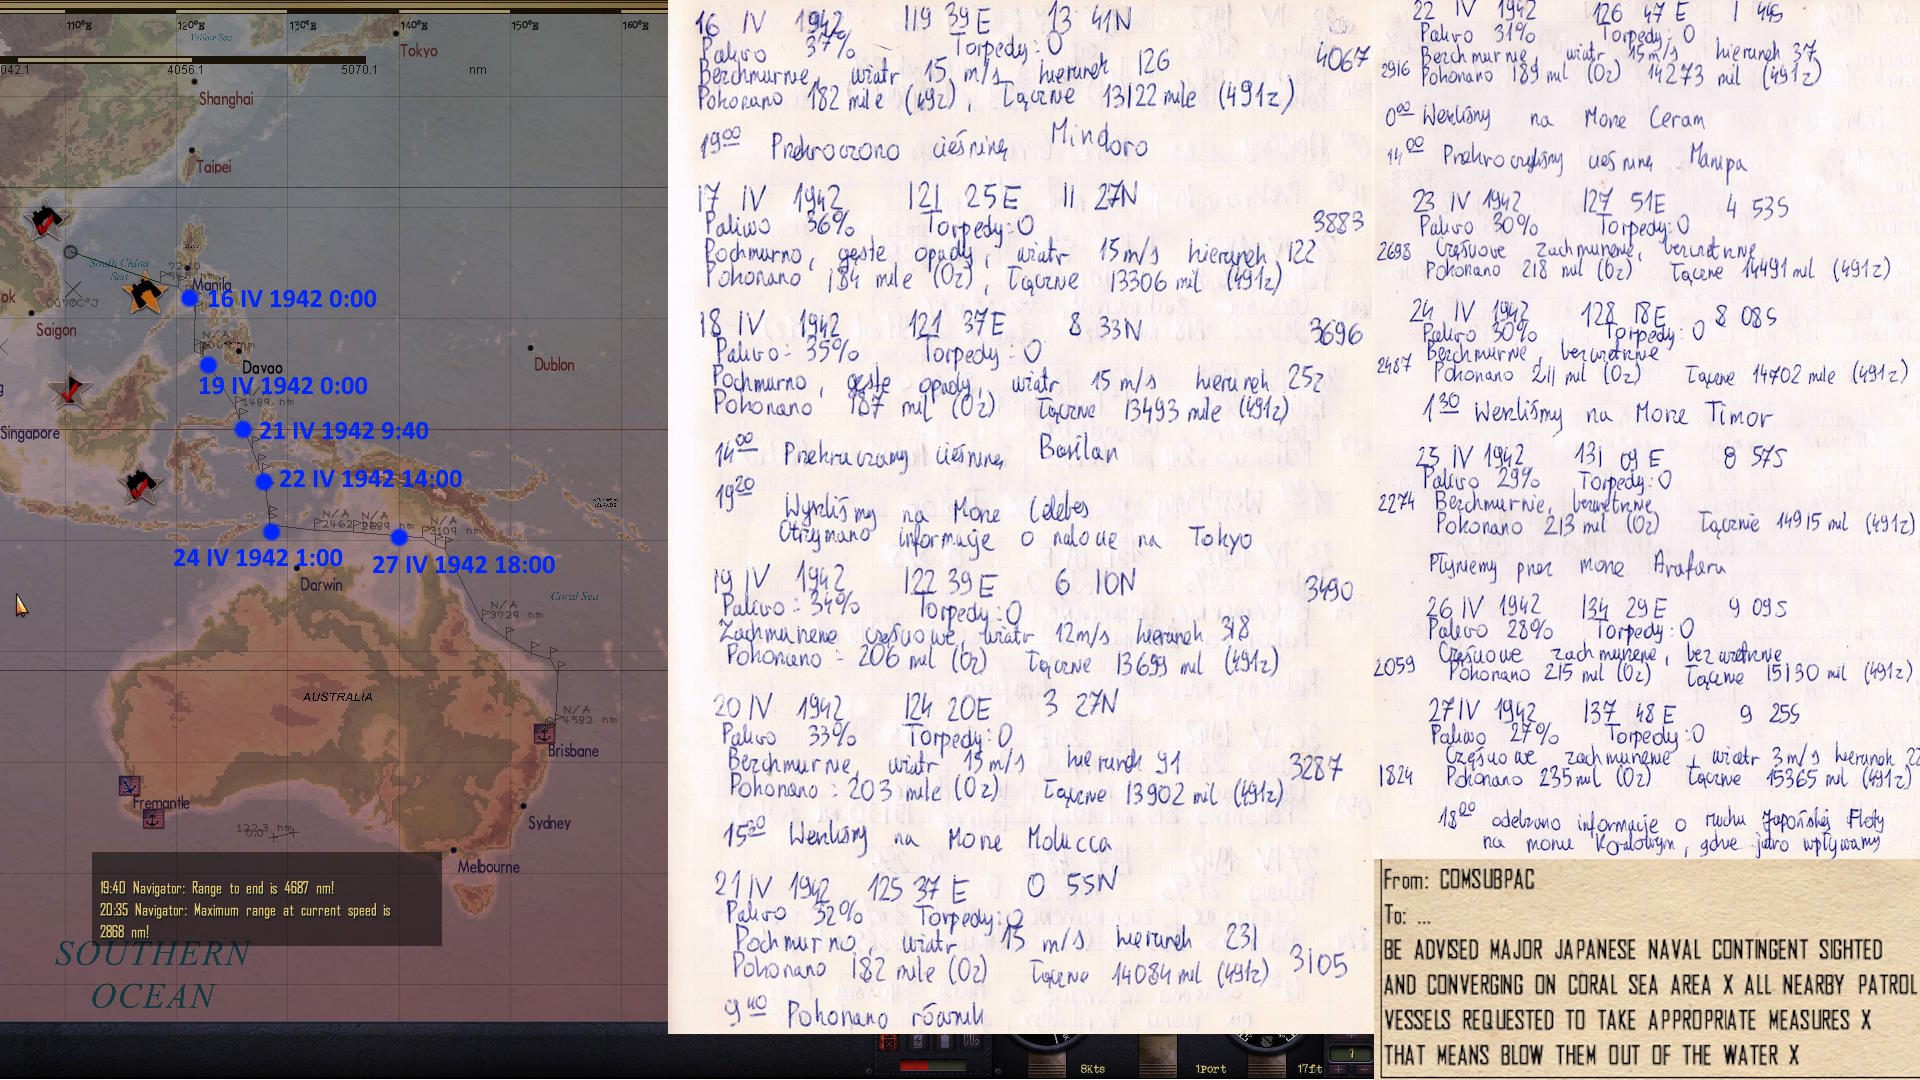 110°E 120°E 130°E 140°E 150°E 160°E
Yellow Sea
Tokyo
042.1 4056.1 5070.1 nm
Shanghai
Taipei
South China Sea
Manila
16 IV 1942 0:00
Saigon
Davao
Dublon
19 IV 1942 0:00
1489 nm
21 IV 1942 9:40
Singapore
22 IV 1942 14:00
N/A N/A
2462 2889 nm
N/A
3109 nm
24 IV 1942 1:00
27 IV 1942 18:00
Darwin
Coral Sea
N/A
3729 nm
AUSTRALIA
N/A
4582 nm
Brisbane
Fremantle
Sydney
Melbourne
19:40 Navigator: Range to end is 4687 nm!
20:35 Navigator: Maximum range at current speed is
2868 nm!
SOUTHERN
OCEAN
16 IV 1942 119 39 E 13 41N
Paliwo 37% Torpedy: 0
Bezchmurnie, wiatr 15 m/s kierunek 126 4067
Pokonano 182 mile (49z), Łącznie 13122 mile (491z)
19⁰⁰ Przekroczono cieśninę Mindoro
17 IV 1942 121 25 E 11 27N
Paliwo 36% Torpedy: 0 3883
Pochmurno, gęste opady, wiatr 15 m/s kierunek 122
Pokonano 184 mile (0z), Łącznie 13306 mil (491z)
18 IV 1942 121 37 E 8 33N 3696
Paliwo = 35% Torpedy: 0
Pochmurno, gęste opady, wiatr 15 m/s kierunek 252
Pokonano 187 mil (0z) Łącznie 13493 mile (491z)
14⁰⁰ Przekraczamy cieśninę Basilan
19²⁰ Wyszliśmy na Morze Celebes
Otrzymano informacje o nalocie na Tokyo
19 IV 1942 122 39 E 6 10N 3490
Paliwo = 34% Torpedy: 0
Zachmurzenie częściowe, wiatr 12m/s kierunek 318
Pokonano = 206 mil (0z) Łącznie 13699 mil (491z)
20 IV 1942 124 20E 3 27N
Paliwo 33% Torpedy: 0
Bezchmurnie, wiatr 15 m/s kierunek 91 3287
Pokonano : 203 mile (0z) Łącznie 13902 mil (491z)
15²⁰ Weszliśmy na Morze Molucca
21 IV 1942 125 37 E 0 55N
Paliwo 32% Torpedy: 0
Pochmurno, wiatr 15 m/s kierunek 231
Pokonano 182 mile (0z) Łącznie 14084 mil (491z) 3105
9⁴⁰ Pokonano równik
22 IV 1942 126 47 E 1 44S
Paliwo 31% Torpedy: 0
Bezchmurnie, wiatr 15m/s kierunek 37
2916 Pokonano 189 mil (0z) 14273 mil (491z)
0⁰⁰ Weszliśmy na Morze Ceram
14⁰⁰ Przekroczyliśmy cieśninę Manipa
23 IV 1942 127 51E 4 53S
Paliwo 30% Torpedy: 0
2698 Częściowe zachmurzenie, bezwietrznie
Pokonano 218 mil (0z) Łącznie 14491 mil (491z)
24 IV 1942 128 18E 8 08S
Paliwo 30% Torpedy: 0
Bezchmurnie, bezwietrznie
2487 Pokonano 211 mil (0z) Łącznie 14702 mile (491z)
1³⁰ Weszliśmy na Morze Timor
25 IV 1942 131 09 E 8 57S
Paliwo 29% Torpedy: 0
2274 Bezchmurnie, bezwietrznie
Pokonano 213 mil (0z) Łącznie 14915 mil (491z)
Płyniemy przez morze Arafura
26 IV 1942 134 29 E 9 09S
Paliwo 28% Torpedy: 0
Częściowe zachmurzenie, bezwietrznie
2059 Pokonano 215 mil (0z) Łącznie 15130 mil (491z)
27 IV 1942 137 48 E 9 25S
Paliwo 27% Torpedy: 0
Częściowe zachmurzenie, wiatr 3 m/s kierunek
1824 Pokonano 235 mil (0z) Łącznie 15365 mil (491z)
18⁰⁰ odebrano informacje o ruchu Japońskiej Floty
na morzu Koralowym, gdzie jutro wpływamy
From: COMSUBPAC
To: ...
BE ADVISED MAJOR JAPANESE NAVAL CONTINGENT SIGHTED
AND CONVERGING ON CORAL SEA AREA X ALL NEARBY PATROL
VESSELS REQUESTED TO TAKE APPROPRIATE MEASURES X
THAT MEANS BLOW THEM OUT OF THE WATER X
8Kts 1Port 17ft